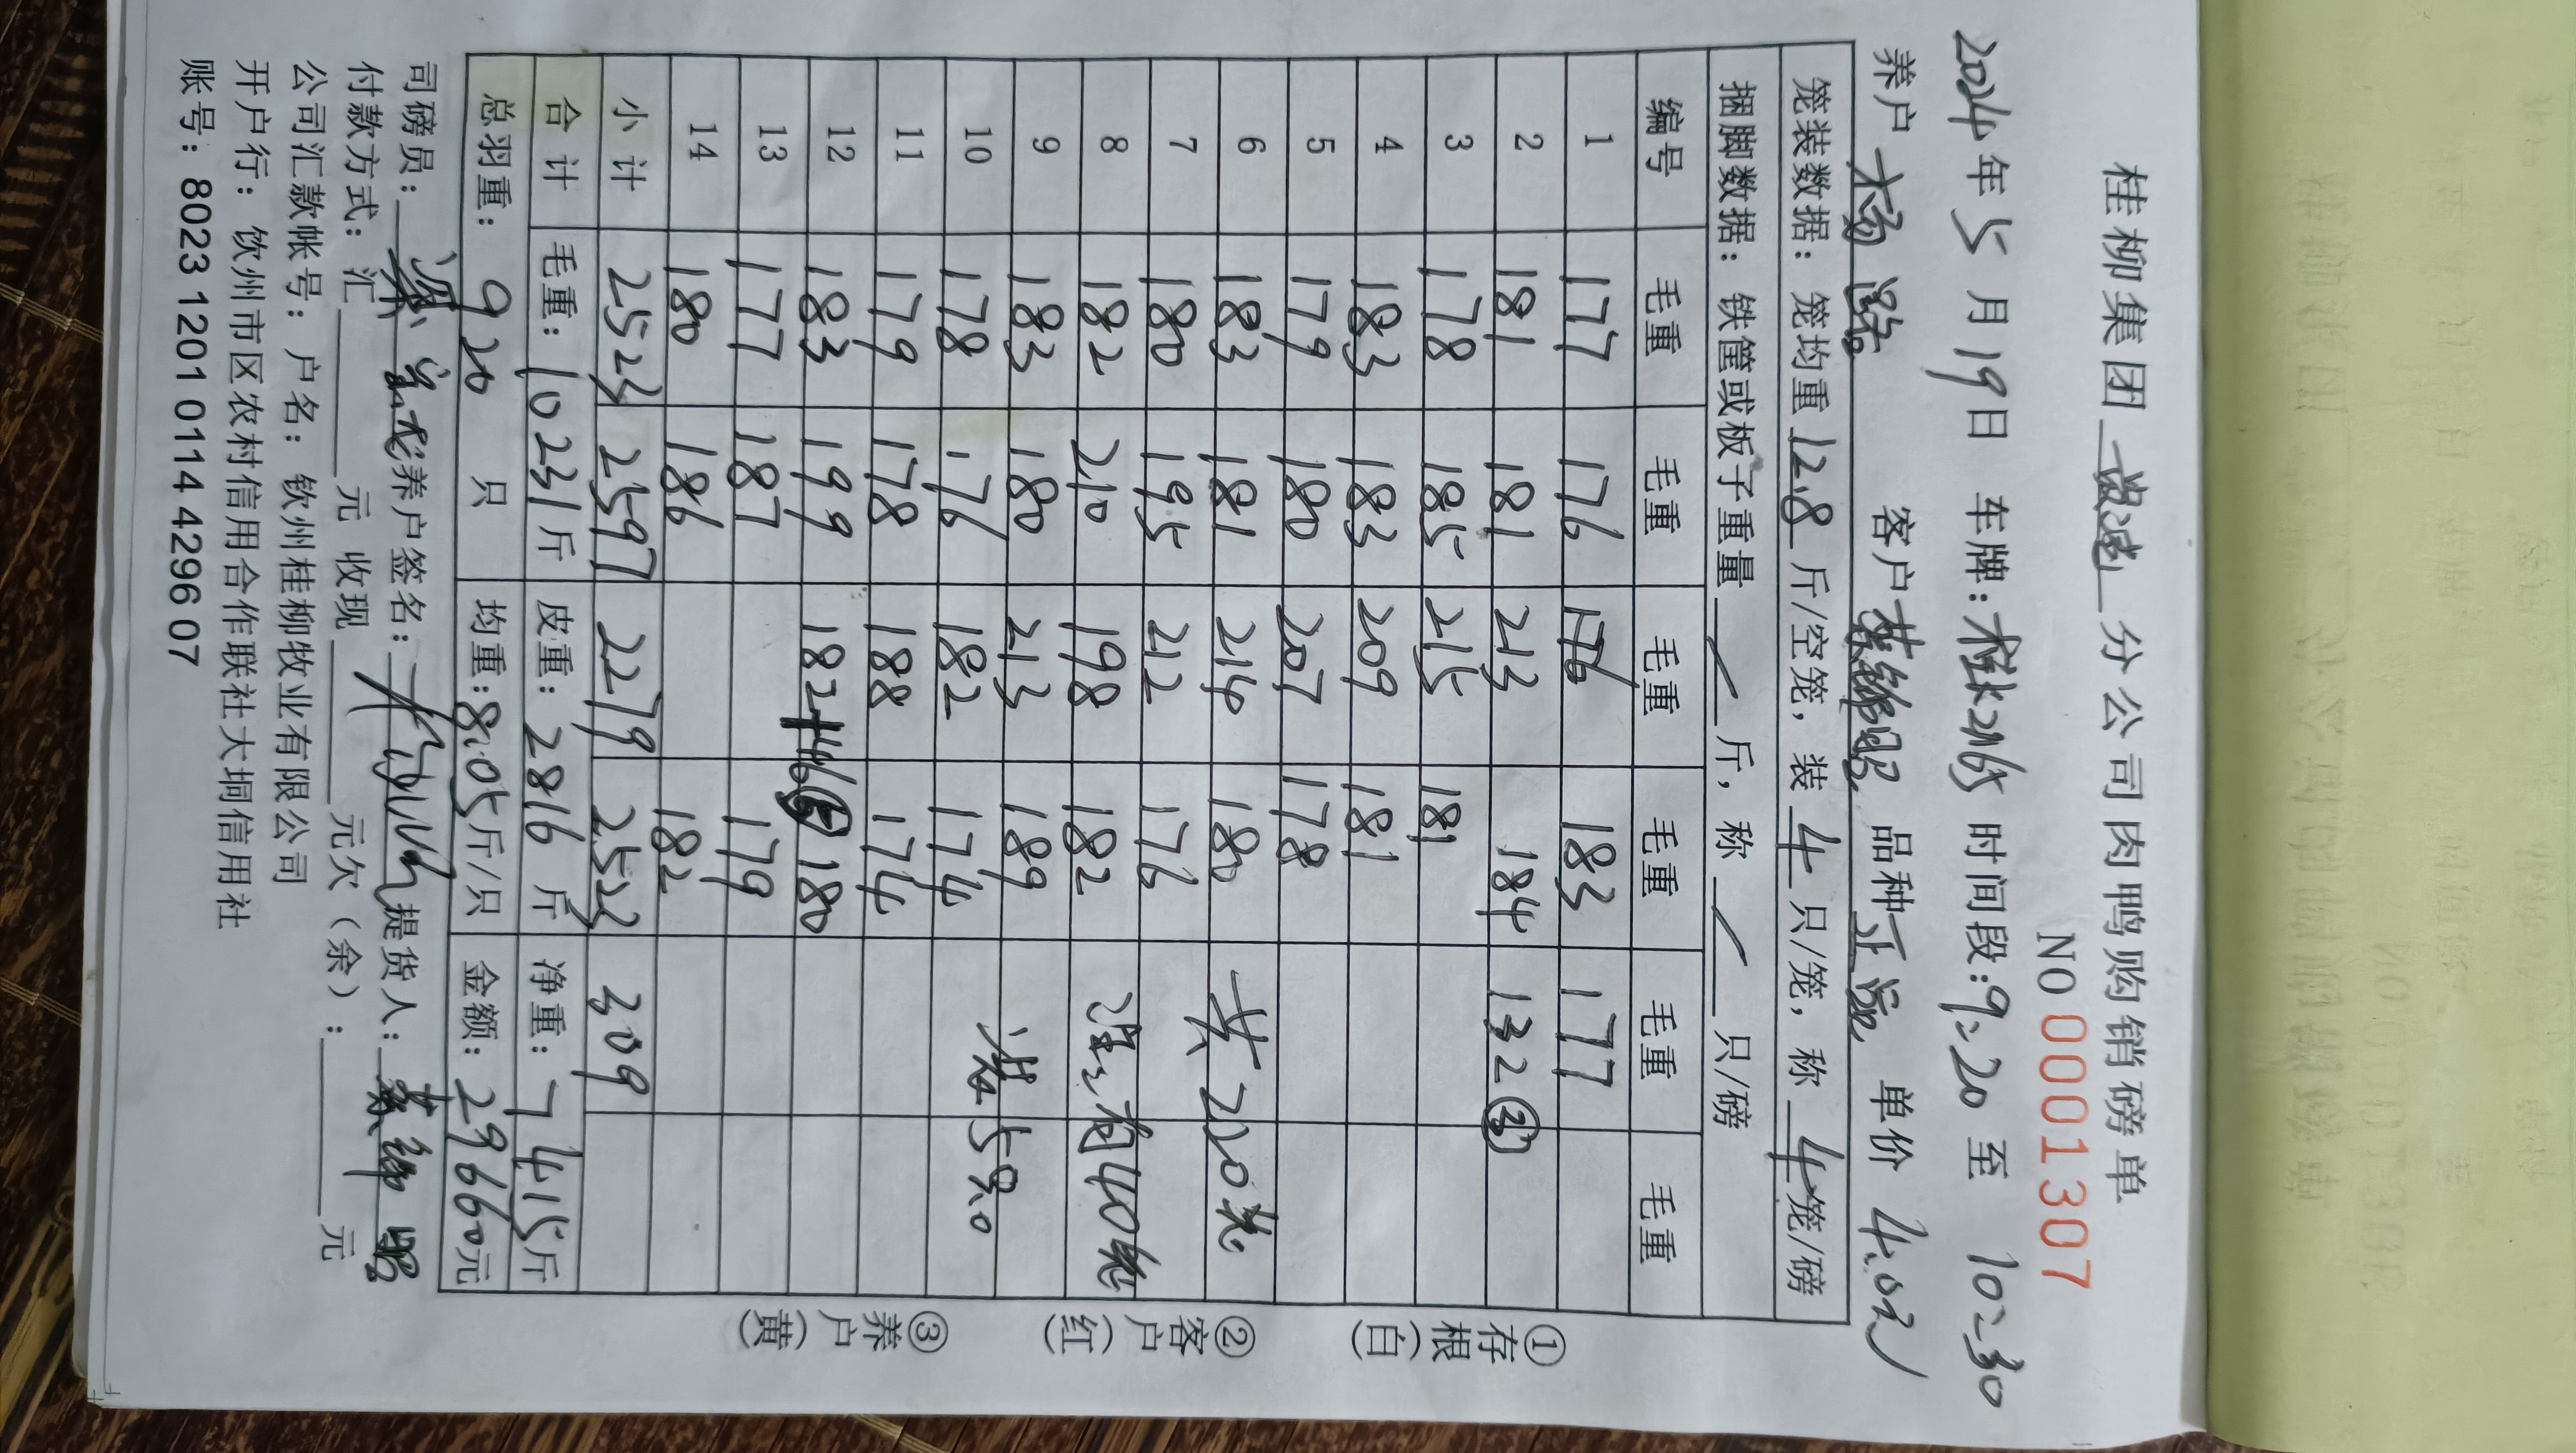 桂柳集团 分公司肉鸭购销磅单
NO 0001307
2024年5月19日 车牌: 时间段:9:20 至 10:30
养户 杨 客户 蔡 品种 单价 4.0元
笼装数据: 笼均重 12.8 斤/空笼, 装 4 只/笼, 称 4 笼/磅
捆脚数据: 铁筐或板子重量 / 斤, 称 / 只/磅
编号 毛重 毛重 毛重 毛重 毛重 毛重
1 177 176 176 183 177
2 181 181 213 184 132 ③
3 178 185 215 181
4 183 183 209 181
5 179 180 207 178
6 183 181 214 180 共220笼
7 180 195 212 176
8 182 210 198 182 没有40笼
9 183 180 213 189
10 178 176 182 174 装5只。
11 179 178 188 174
12 183 199 182 180
13 177 187 179
14 180 186 182
小计 2523 2597 2279 2523 309
合计 毛重: 10231斤 皮重: 2816 斤 净重: 7415斤
总羽重: 920 只 均重:8.05斤/只 金额: 29660元
司磅员: 梁 养户签名: 提货人: 蔡
付款方式: 汇 元 收现 元欠(余): 元
公司汇款帐号: 户名: 钦州桂柳牧业有限公司
开户行: 钦州市区农村信用合作联社大垌信用社
账号: 8023 1201 0114 4296 07
①存根(白)
②客户(红)
③养户(黄)